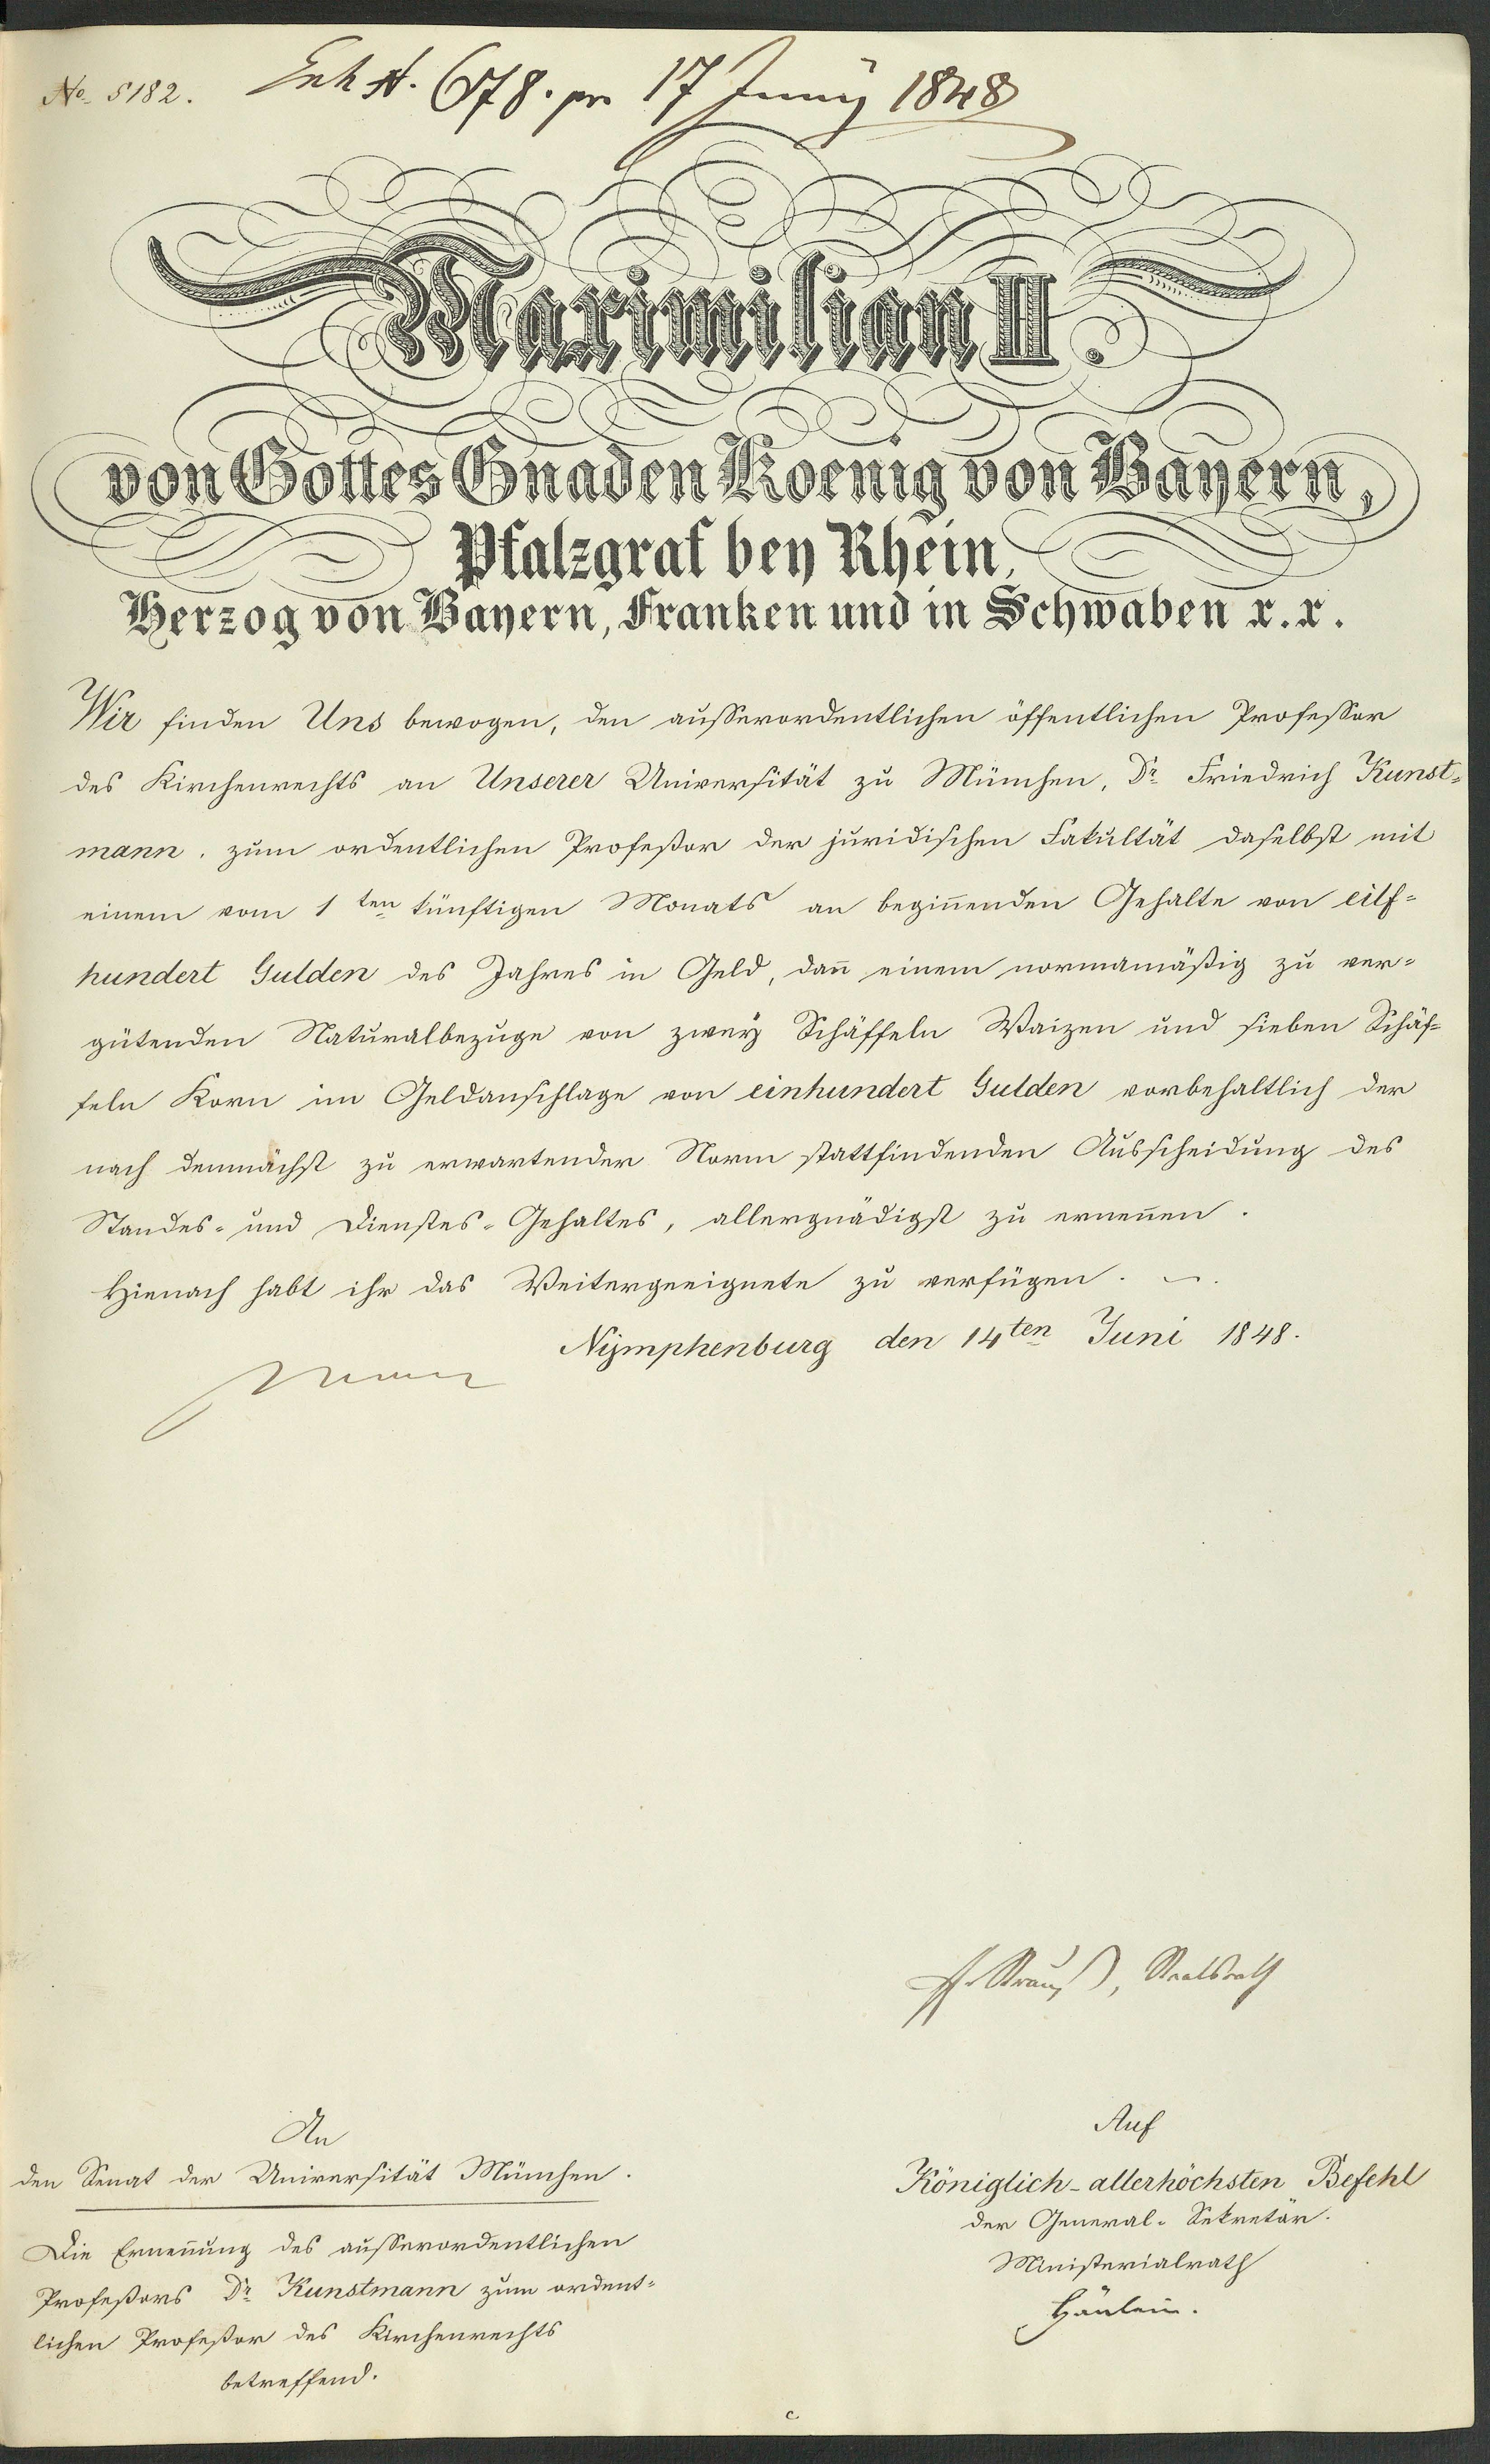 No. 5182.
678. pr 17 Juny 1848
Maximilian II.
von Gottes Gnaden Koenig von Bayern,
Pfalzgraf bey Rhein,
Herzog von Bayern, Franken und in Schwaben r. r.
Wir finden Uns bewogen, den ausserordentlichen öffentlichen Professor
des Kirchenrechts an Unserer Universität zu München, Dr. Friedrich Kunst-
mann, zum ordentlichen Profeßor der juridischen Fakultät daselbst mit
einem vom 1ten künftigen Monats an begin̄enden Gehalte von eilf-
hundert Gulden des Jahres in Geld, dan̄ einem normamäßig zu ver-
gütenden Naturalbezuge von zwey Schäffeln Waizen und sieben Schäf-
feln Korn im Geldanschlage von einhundert Gulden vorbehaltlich der
nach demnächst zu erwartender Norm stattfindenden Ausscheidung des
Standes- und Dienstes-Gehaltes, allergnädigst zu ernen̄en.
Hienach habt ihr das Weitergeeignete zu verfügen.
Nymphenburg den 14ten Juni 1848.
Strauß, Staatsrath
An
den Senat der Universität München.
Die Ernen̄ung des ausserordentlichen
Profeßors Dr. Kunstmann zum ordent-
lichen Profeßor des Kirchenrechts
betreffend.
Auf
Königlich-allerhöchsten Befehl
der General-Sekretär.
Ministerialrath
Hänlein.
c